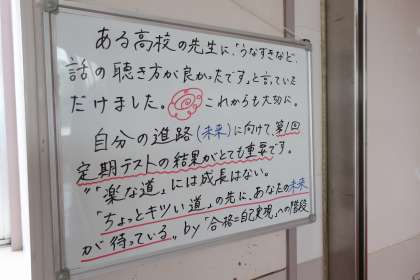 ある高校の先生に、「うなずきなど、
話の聴き方が良かったです」と言っていた
だけました。 これからも大切に。
自分の進路(未来)に向けて、第1回
定期テストの結果がとても重要です。
"「楽な道」には成長はない。
「ちょっとキツい道」の先に、あなたの未来
が待っている" by「合格=自己実現」への階段